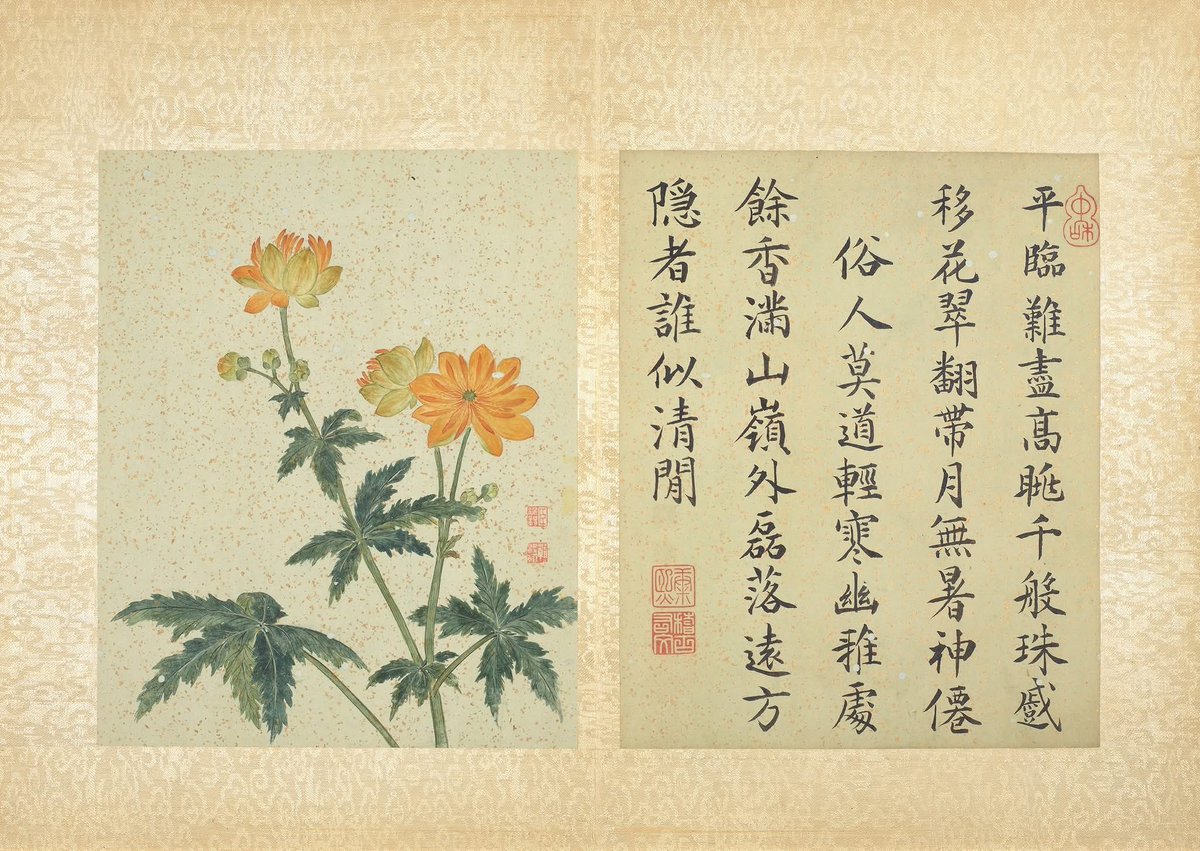 平臨難盡高眺千般珠戲
移花翠翻帶月無暑神僊
俗人莫道輕寒幽雅處
餘香滿山嶺外磊落遠方
隠者誰似清閒